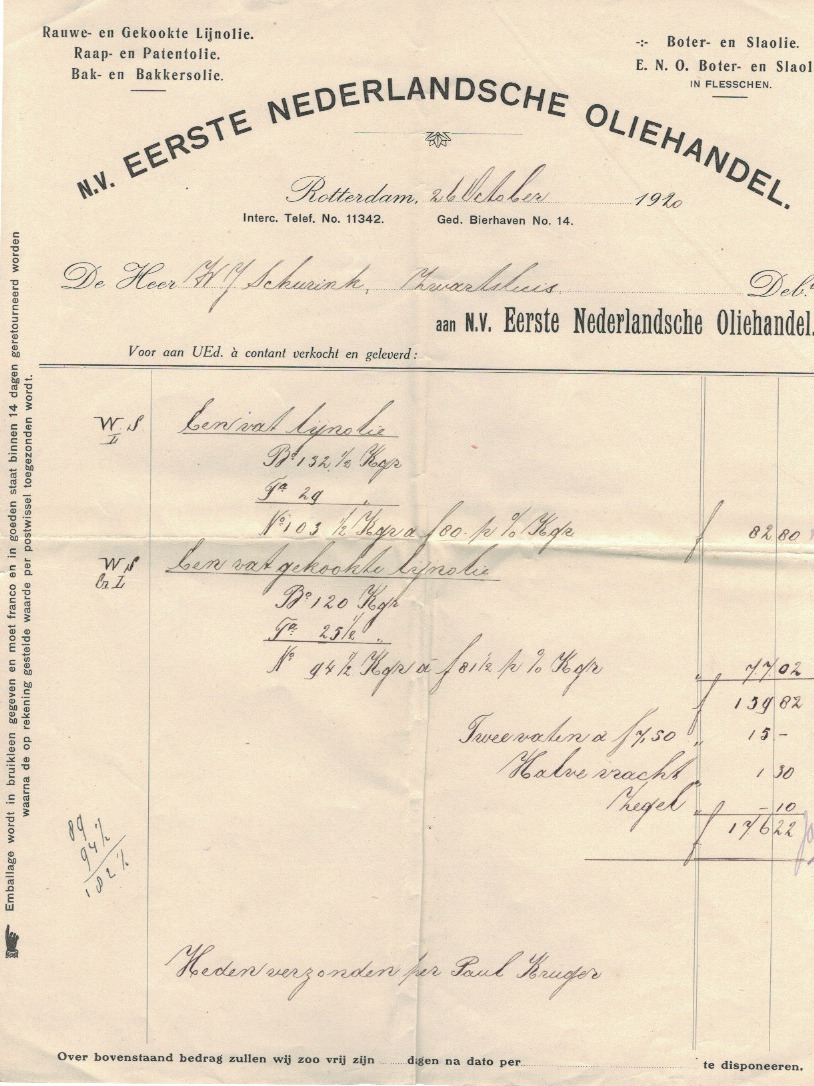 Rauwe- en Gekookte Lijnolie.
Raap- en Patentolie.
Bak- en Bakkersolie.
-:- Boter- en Slaolie.
E. N. O. Boter- en Slaol
IN FLESSCHEN.
N.V. EERSTE NEDERLANDSCHE OLIEHANDEL.
Rotterdam, 26 October 1920
Interc. Telef. No. 11342. Ged. Bierhaven No. 14.
De Heer W J Schurink, Zwartsluis Deb.
aan N.V. Eerste Nederlandsche Oliehandel.
Voor aan UEd. à contant verkocht en geleverd:
W S Een vat lijnolie
L
Bo 132 1/2 Kgr
Ta 29 "
No 103 1/2 Kgr a f 80.- p % Kgr f 82 80
W S Een vat gekookte lijnolie
G L
Bo 120 Kgr
Ta 25 1/2 "
No 94 1/2 Kgr à f 81 1/2 p % Kgr " 77 02
f 159 82
Twee vaten a f 7,50 " 15 -
Halve vracht " 1 30
Zegel " - 10
f 176 22
89
94 1/2
182 1/2
Heden verzonden per Paul Kruger
Over bovenstaand bedrag zullen wij zoo vrij zijn dagen na dato per te disponeeren.
Emballage wordt in bruikleen gegeven en moet franco en in goeden staat binnen 14 dagen geretourneerd worden
waarna de op rekening gestelde waarde per postwissel toegezonden wordt.